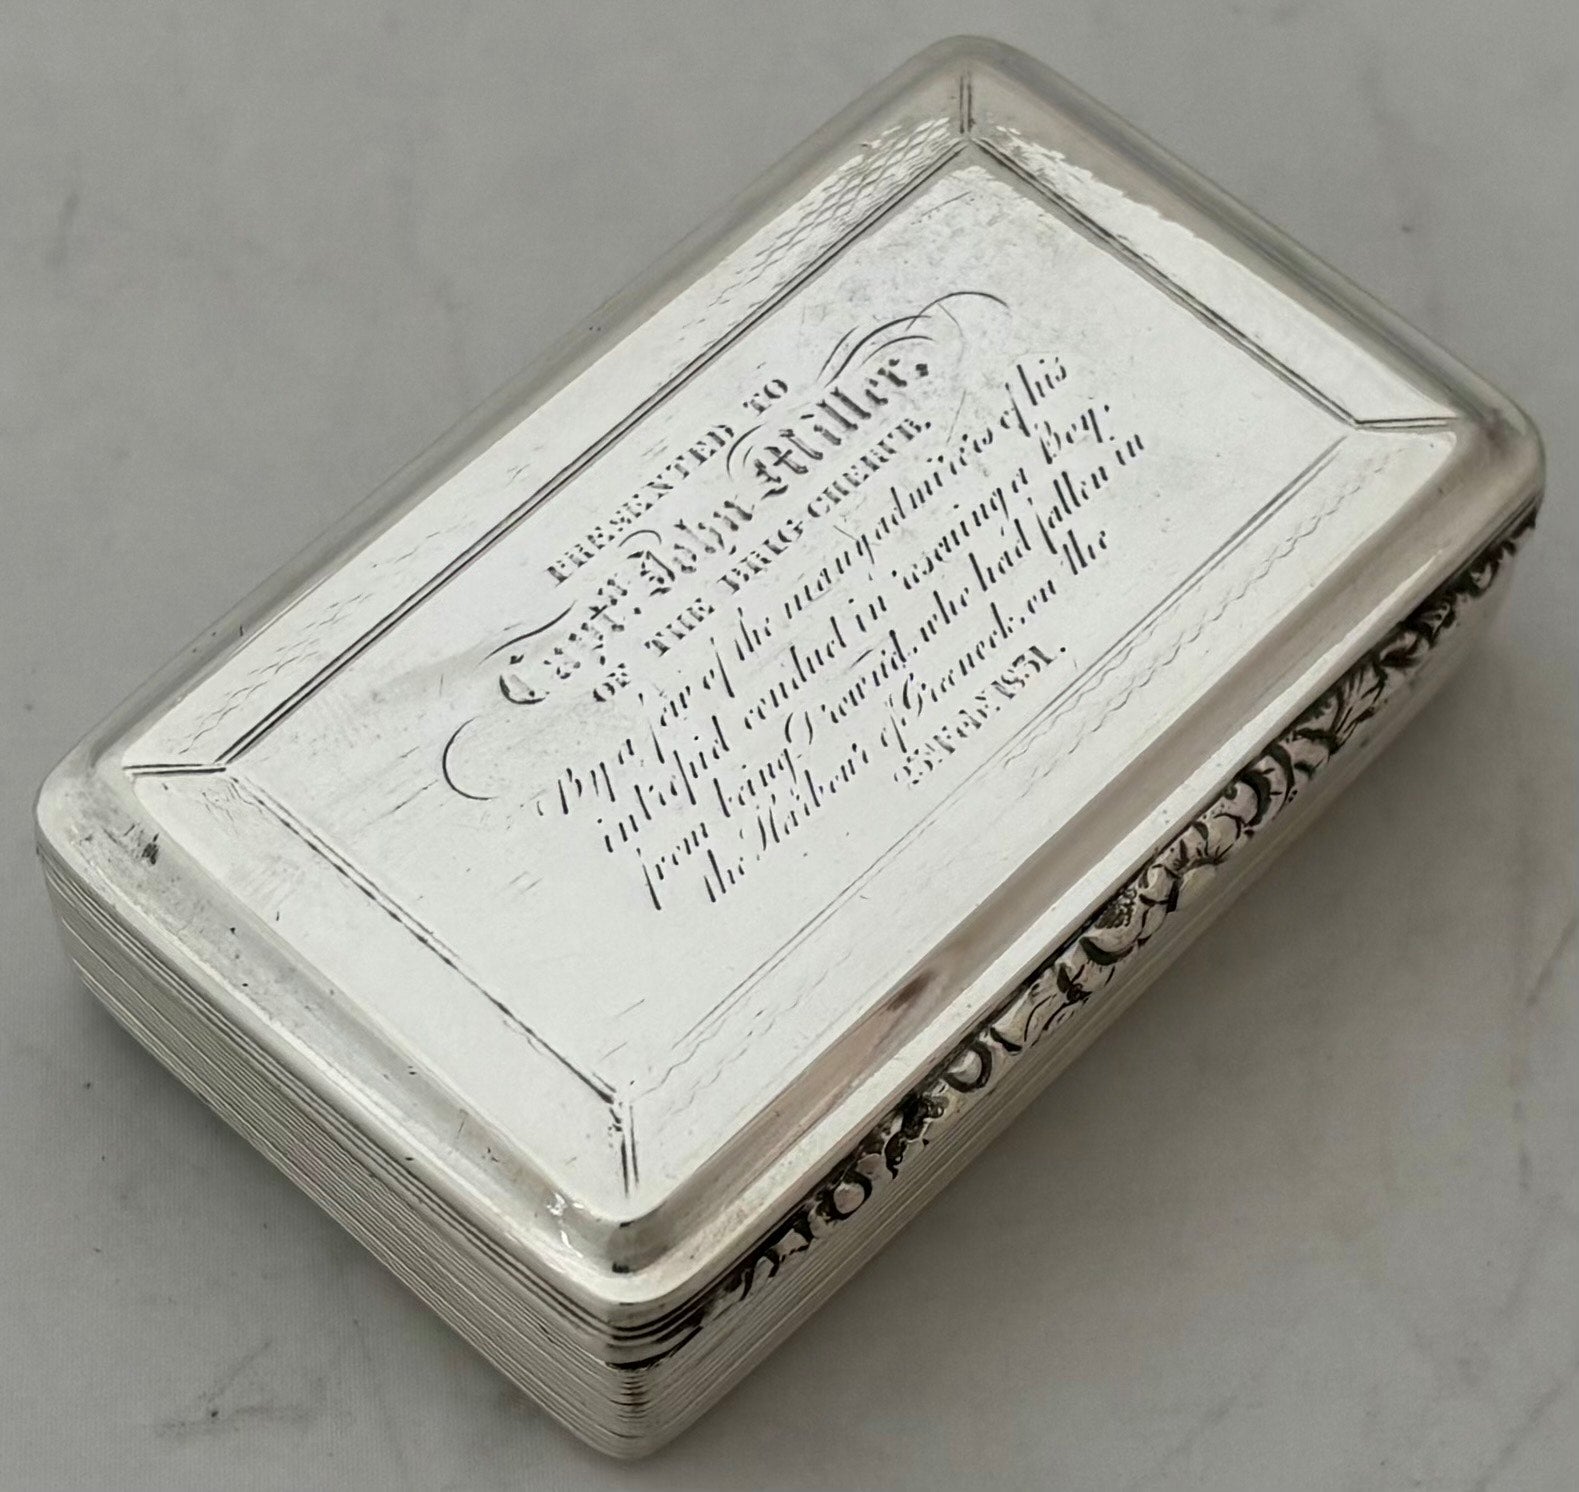 PRESENTED TO
Capt. John Miller,
OF THE BRIG CHERUB,
By a few of the many admirers of his
intrepid conduct in rescuing a Boy,
from being Drown'd, who had fallen in
the Harbour of Greenock, on the
1831.